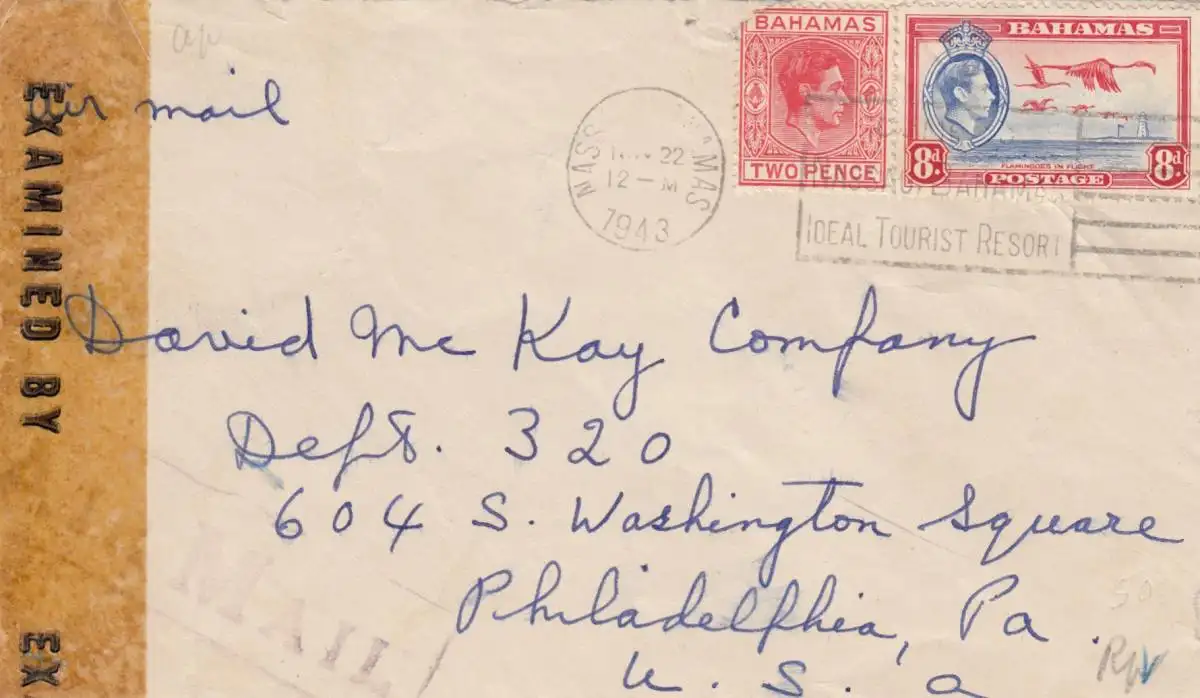 EXAMINED BY
EX
air mail
BAHAMAS
TWO PENCE
BAHAMAS
8d
FLAMINGOES IN FLIGHT
8d
POSTAGE
NASS MAS
22
12—M
1943
BAHAMAS
IDEAL TOURIST RESORT
David Mc Kay Company
Dept. 320
604 S. Washington Square
Philadelphia, Pa.
U. S. a
MAIL
50